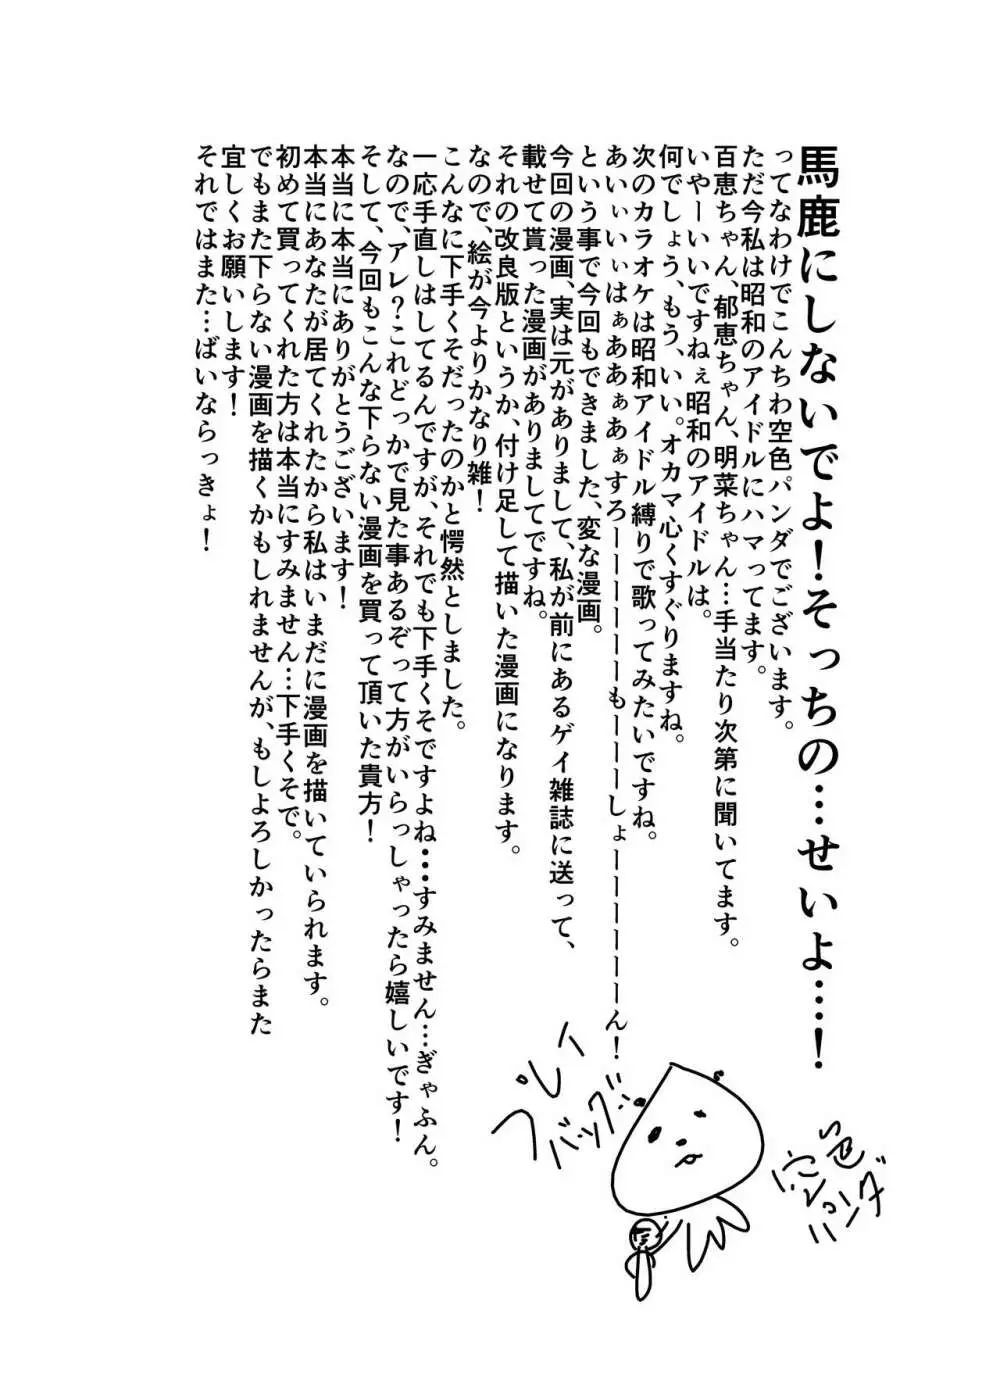 馬鹿にしないでよ！そっちの…せいよ…！
ってなわけでこんちわ空色パンダでございます。
ただ今私は昭和のアイドルにハマってます。
百恵ちゃん、郁恵ちゃん、明菜ちゃん…手当たり次第に聞いてます。
いやーいいですねぇ昭和のアイドルは。
何でしょう、もう、いい。オカマ心くすぐりますね。
次のカラオケは昭和アイドル縛りで歌ってみたいですね。
あいぃいぃはぁああぁあぁすろーーーーーもーーーしょーーーーーーん！
という事で今回もできました、変な漫画。
今回の漫画、実は元がありまして、私が前にあるゲイ雑誌に送って、
載せて貰った漫画がありましてですね。
それの改良版というか、付け足して描いた漫画になります。
なので、絵が今よりかなり雑！
こんなに下手くそだったのかと愕然としました。
一応手直しはしてるんですが、それでも下手くそですよね…すみません…ぎゃふん。
なので、アレ？これどっかで見た事あるぞって方がいらっしゃったら嬉しいです！
そして、今回もこんな下らない漫画を買って頂いた貴方！
本当に本当にありがとうございます！
本当にあなたが居てくれたから私はいまだに漫画を描いていられます。
初めて買ってくれた方は本当にすみません…下手くそで。
でもまた下らない漫画を描くかもしれませんが、もしよろしかったらまた
宜しくお願いします！
それではまた…ばいならっきょ！
プレイ
バック
空色
パンダ